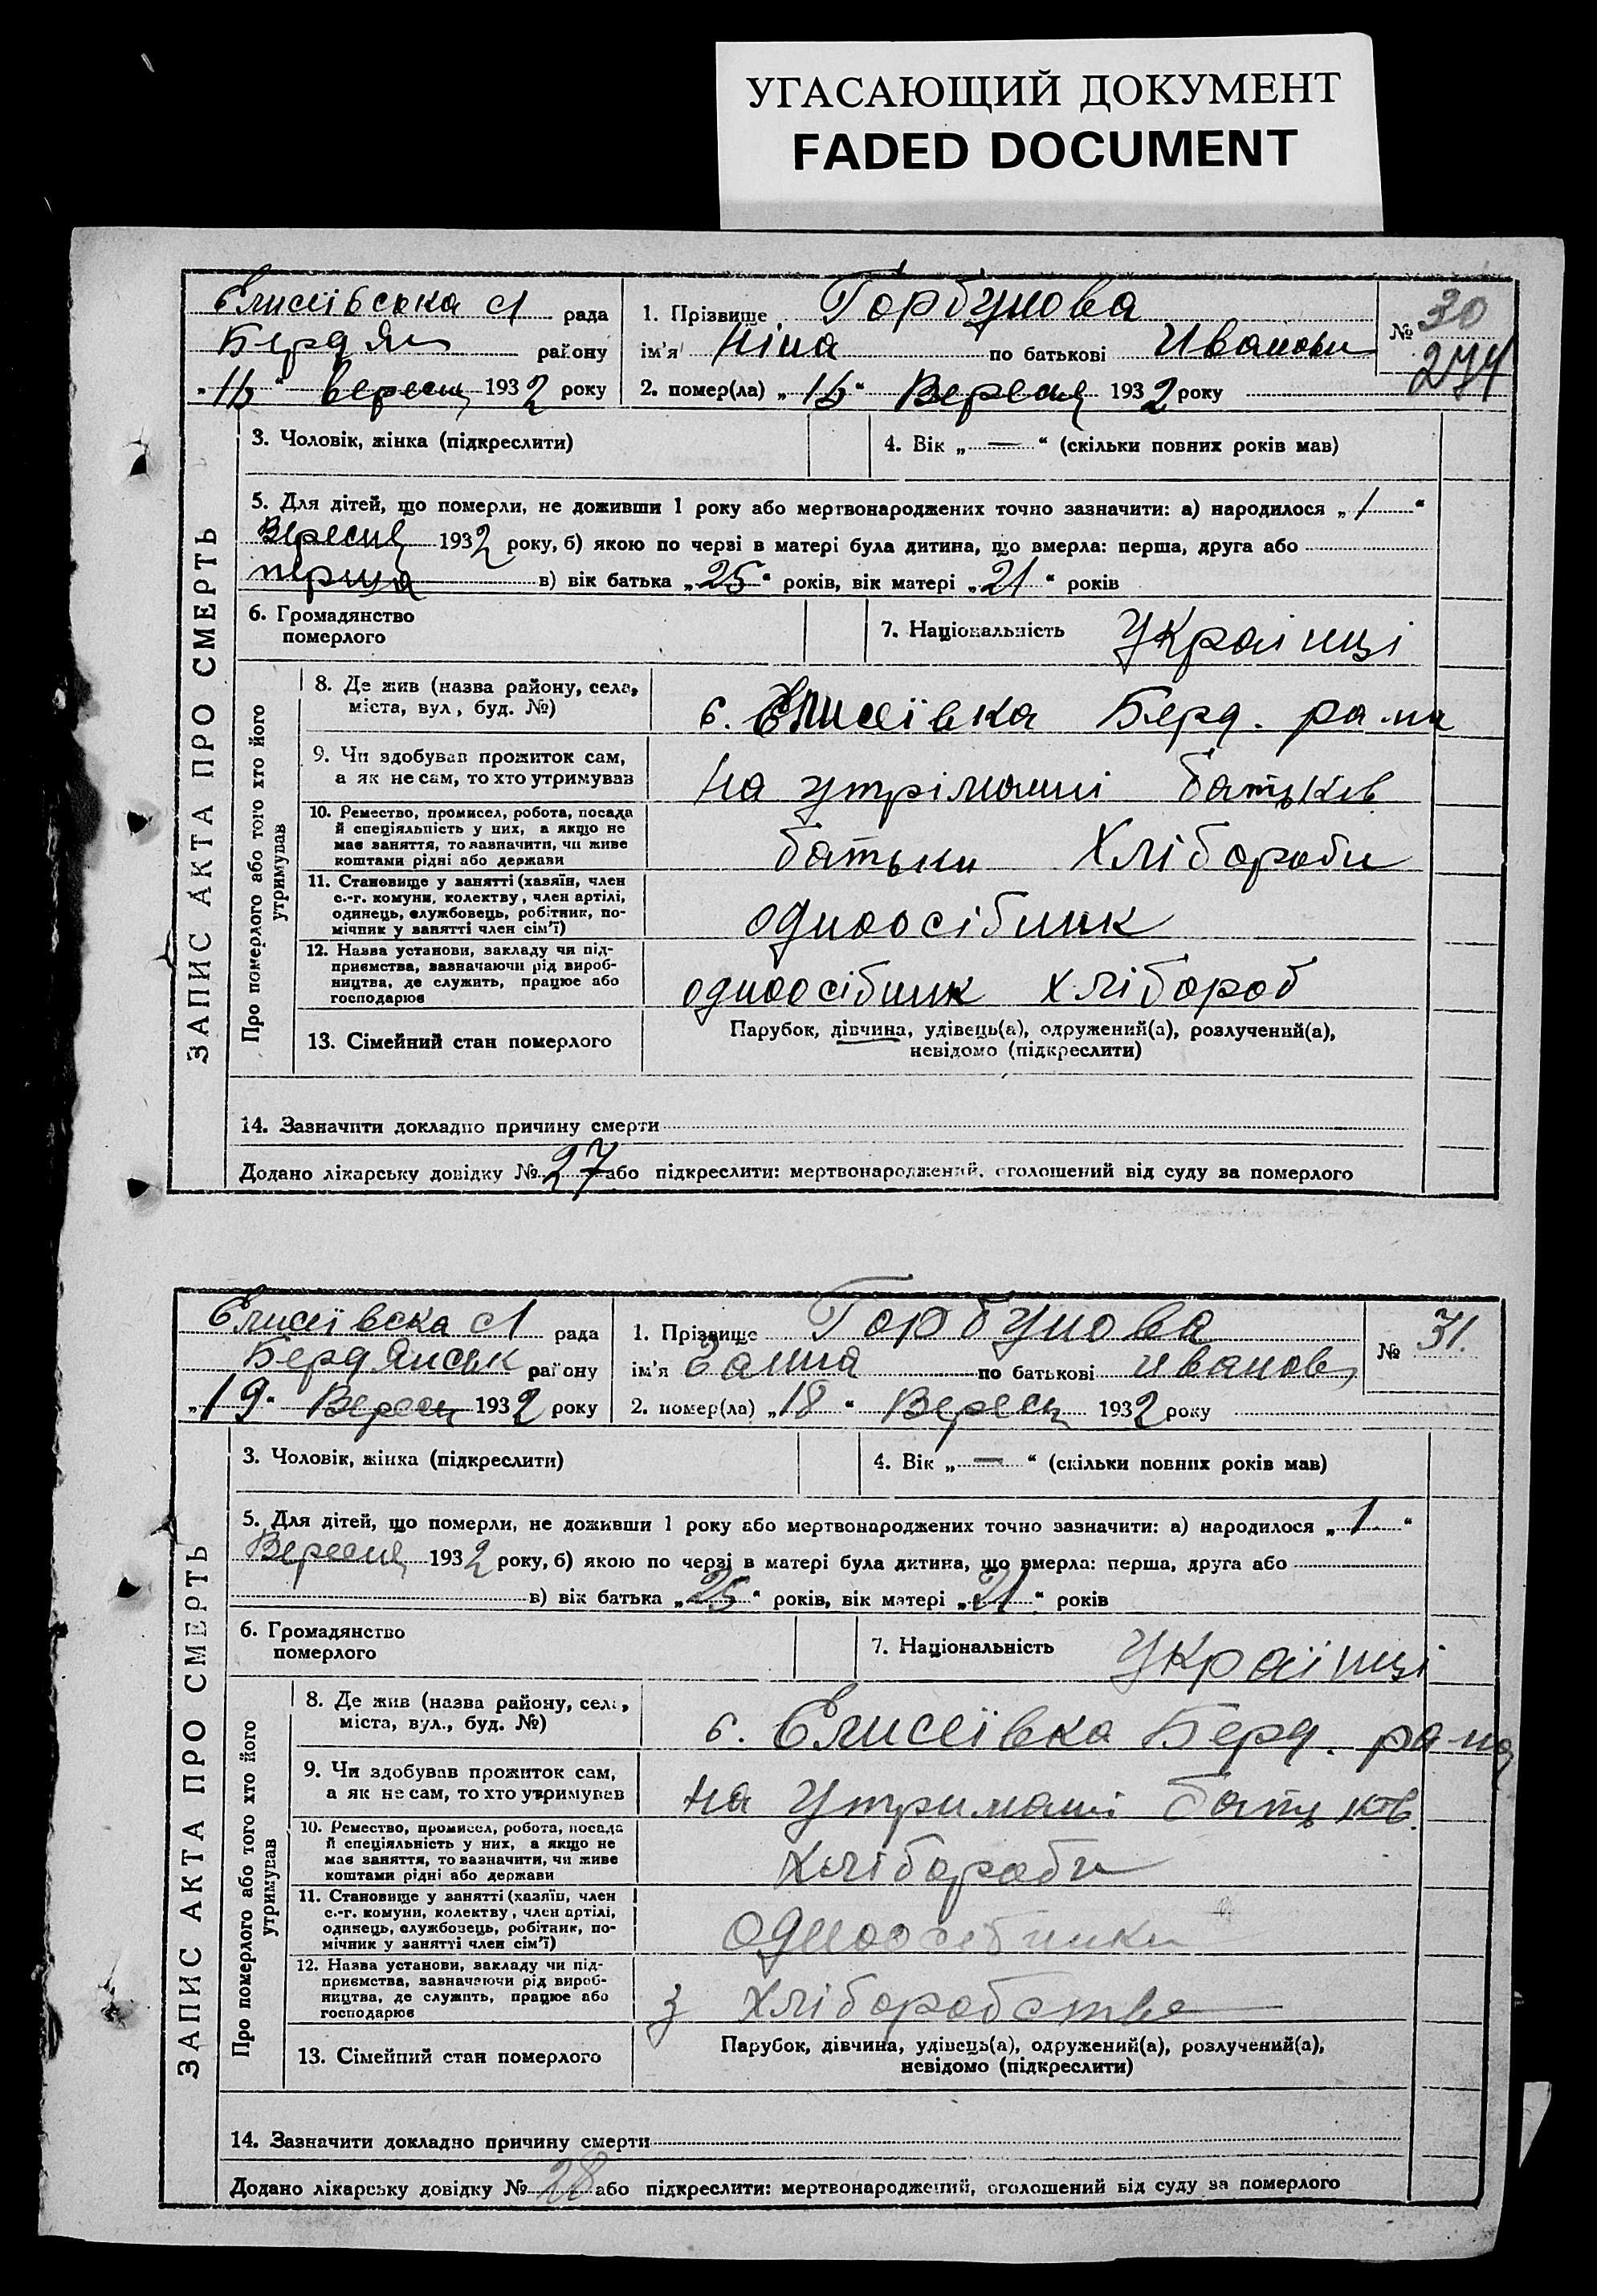 УГАСАЮЩИЙ ДОКУМЕНТ
FADED DOCUMENT
ЗАПИС АКТА ПРО СМЕРТЬ
Єлисіївська С рада
Бердян району
" вересн 1932 року
1. Прізвище Горбунова
ім'я Ніна по батькові Иванови
2. помер(ла) " Вересня 1932 року
№ 30
274
3. Чоловік, жінка (підкреслити)
4. Вік „ — “ (скільки повних років мав)
5. Для дітей, що померли, не доживши 1 року або мертвонароджених точно зазначити: а) народилося „ 1 “
Вересня 1932 року, б) якою по черзі в матері була дитина, що вмерла: перша, друга або
перша в) вік батька „ 25 “ років, вік матері „ 21 “ років
6. Громадянство
померлого
7. Національність Украінці
Про померлого або того хто його
утримував
8. Де жив (назва району, села,
міста, вул, буд. №)
с. Єлисеївка Берд. ра-на
9. Чи здобував прожиток сам,
а як не сам, то хто утримував
на утріманні батьків
10. Ремество, промисел, робота, посада
й спеціяльність у них, а якщо не
має заняття, то вазначити, чи живе
коштами рідні або держави
батьки Хлібороби
11. Становище у занятті (хазяїн, член
с.-г. комуни, колектву, член артілі,
одинець, службовець, робітник, по-
мічник у занятті член сім'ї)
одноосібник
12. Назва установи, закладу чи під-
приємства, вазначаючи рід вироб-
ництва, де служить, працює або
господарює
одноосібник хлібороб
13. Сімейний стан померлого
Парубок, дівчина, удівець(а), одружений(а), розлучений(а),
невідомо (підкреслити)
14. Зазначити докладно причину смерти
Додано лікарську довідку № 27 або підкреслити: мертвонароджений, оголошений від суду за померлого
ЗАПИС АКТА ПРО СМЕРТЬ
Єлисіївска С рада
Бердянськ району
„19“ Вересн 1932 року
1. Прізвище Горбунова
ім'я Ганна по батькові Иванов
2. помер(ла) „18“ Вересн 1932 року
№ 31.
3. Чоловік, жінка (підкреслити)
4. Вік „ — “ (скільки повних років мав)
5. Для дітей, що померли, не доживши 1 року або мертвонароджених точно зазначити: а) народилося „ 1 “
Вересня 1932 року, б) якою по черзі в матері була дитина, що вмерла: перша, друга або
в) вік батька „ 25 “ років, вік матері „ 21 “ років
6. Громадянство
померлого
7. Національність Україінці
Про померлого або того хто його
утримував
8. Де жив (назва району, села,
міста, вул., буд. №)
с. Єлисеївка Берд. ра-на
9. Чи здобував прожиток сам,
а як не сам, то хто утримував
на утриманні батьків.
10. Ремество, промисел, робота, посада
й спеціяльність у них, а якщо не
має заняття, то вазначити, чи живе
коштами рідні або держави
Хлібороби
11. Становище у занятті (хазяїн, член
с.-г. комуни, колектву, член артілі,
одинець, службовець, робітник, по-
мічник у занятті член сім'ї)
одноосібники
12. Назва установи, закладу чи під-
приємства, вазначаючи рід вироб-
ництва, де служить, працює або
господарює
з хліборобства
13. Сімейний стан померлого
Парубок, дівчина, удівець(а), одружений(а), розлучений(а),
невідомо (підкреслити)
14. Зазначити докладно причину смерти
Додано лікарську довідку № 28 або підкреслити: мертвонароджений, оголошений від суду за померлого